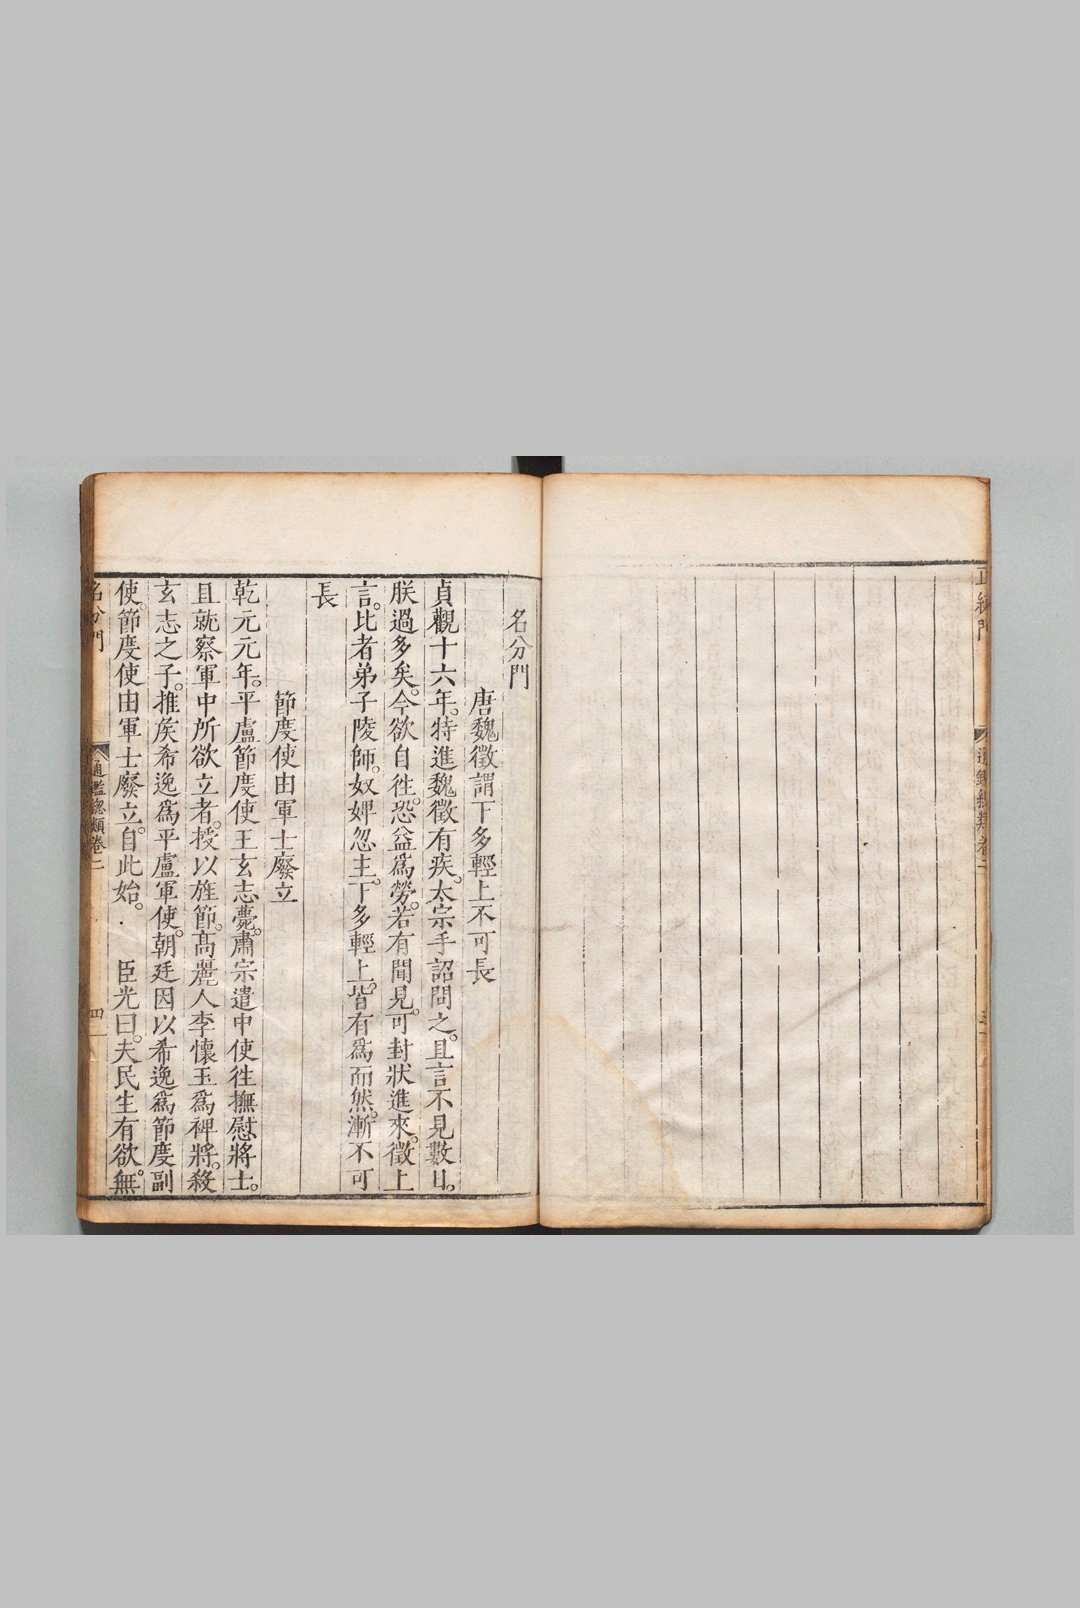 正統門
名分門
唐魏徵謂下多輕上不可長
貞觀十六年。特進魏徵有疾。太宗手詔問之。且言不見數日。
朕過多矣。今欲自徃。恐益爲勞。若有聞見。可封狀進來。徵上
言。比者弟子陵師。奴婢忽主。下多輕上。皆有爲而然。漸不可
長
節度使由軍士廢立
乾元元年。平盧節度使王玄志薨。肅宗遣中使徃撫慰將士。
且就察軍中所欲立者。授以旌節。高麗人李懷玉爲裨將。殺
玄志之子。推侯希逸爲平盧軍使。朝廷因以希逸爲節度副
使。節度使由軍士廢立。自此始。 臣光曰。夫民生有欲。無
名分門 通鑑總類卷二 四一